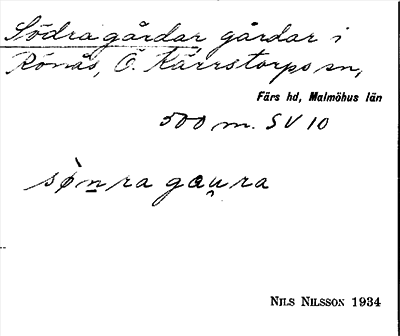 Södra gårdar gårdar i
Rönås, Ö. Kärrstorps sn,
Färs hd, Malmöhus län
500 m. SV 10
sø̀n̲ra gau̯ra
NILS NILSSON 1934